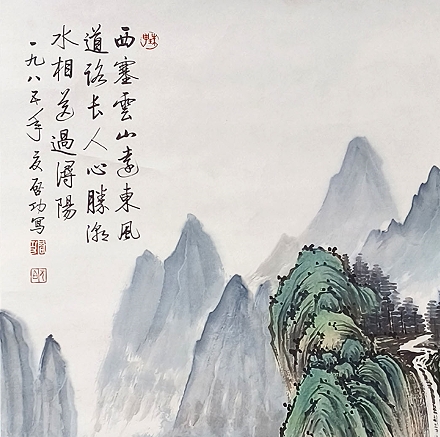 西塞雲山遠東風
道路長人心勝潮
水相送過潯陽
一九八五年夏啓功寫